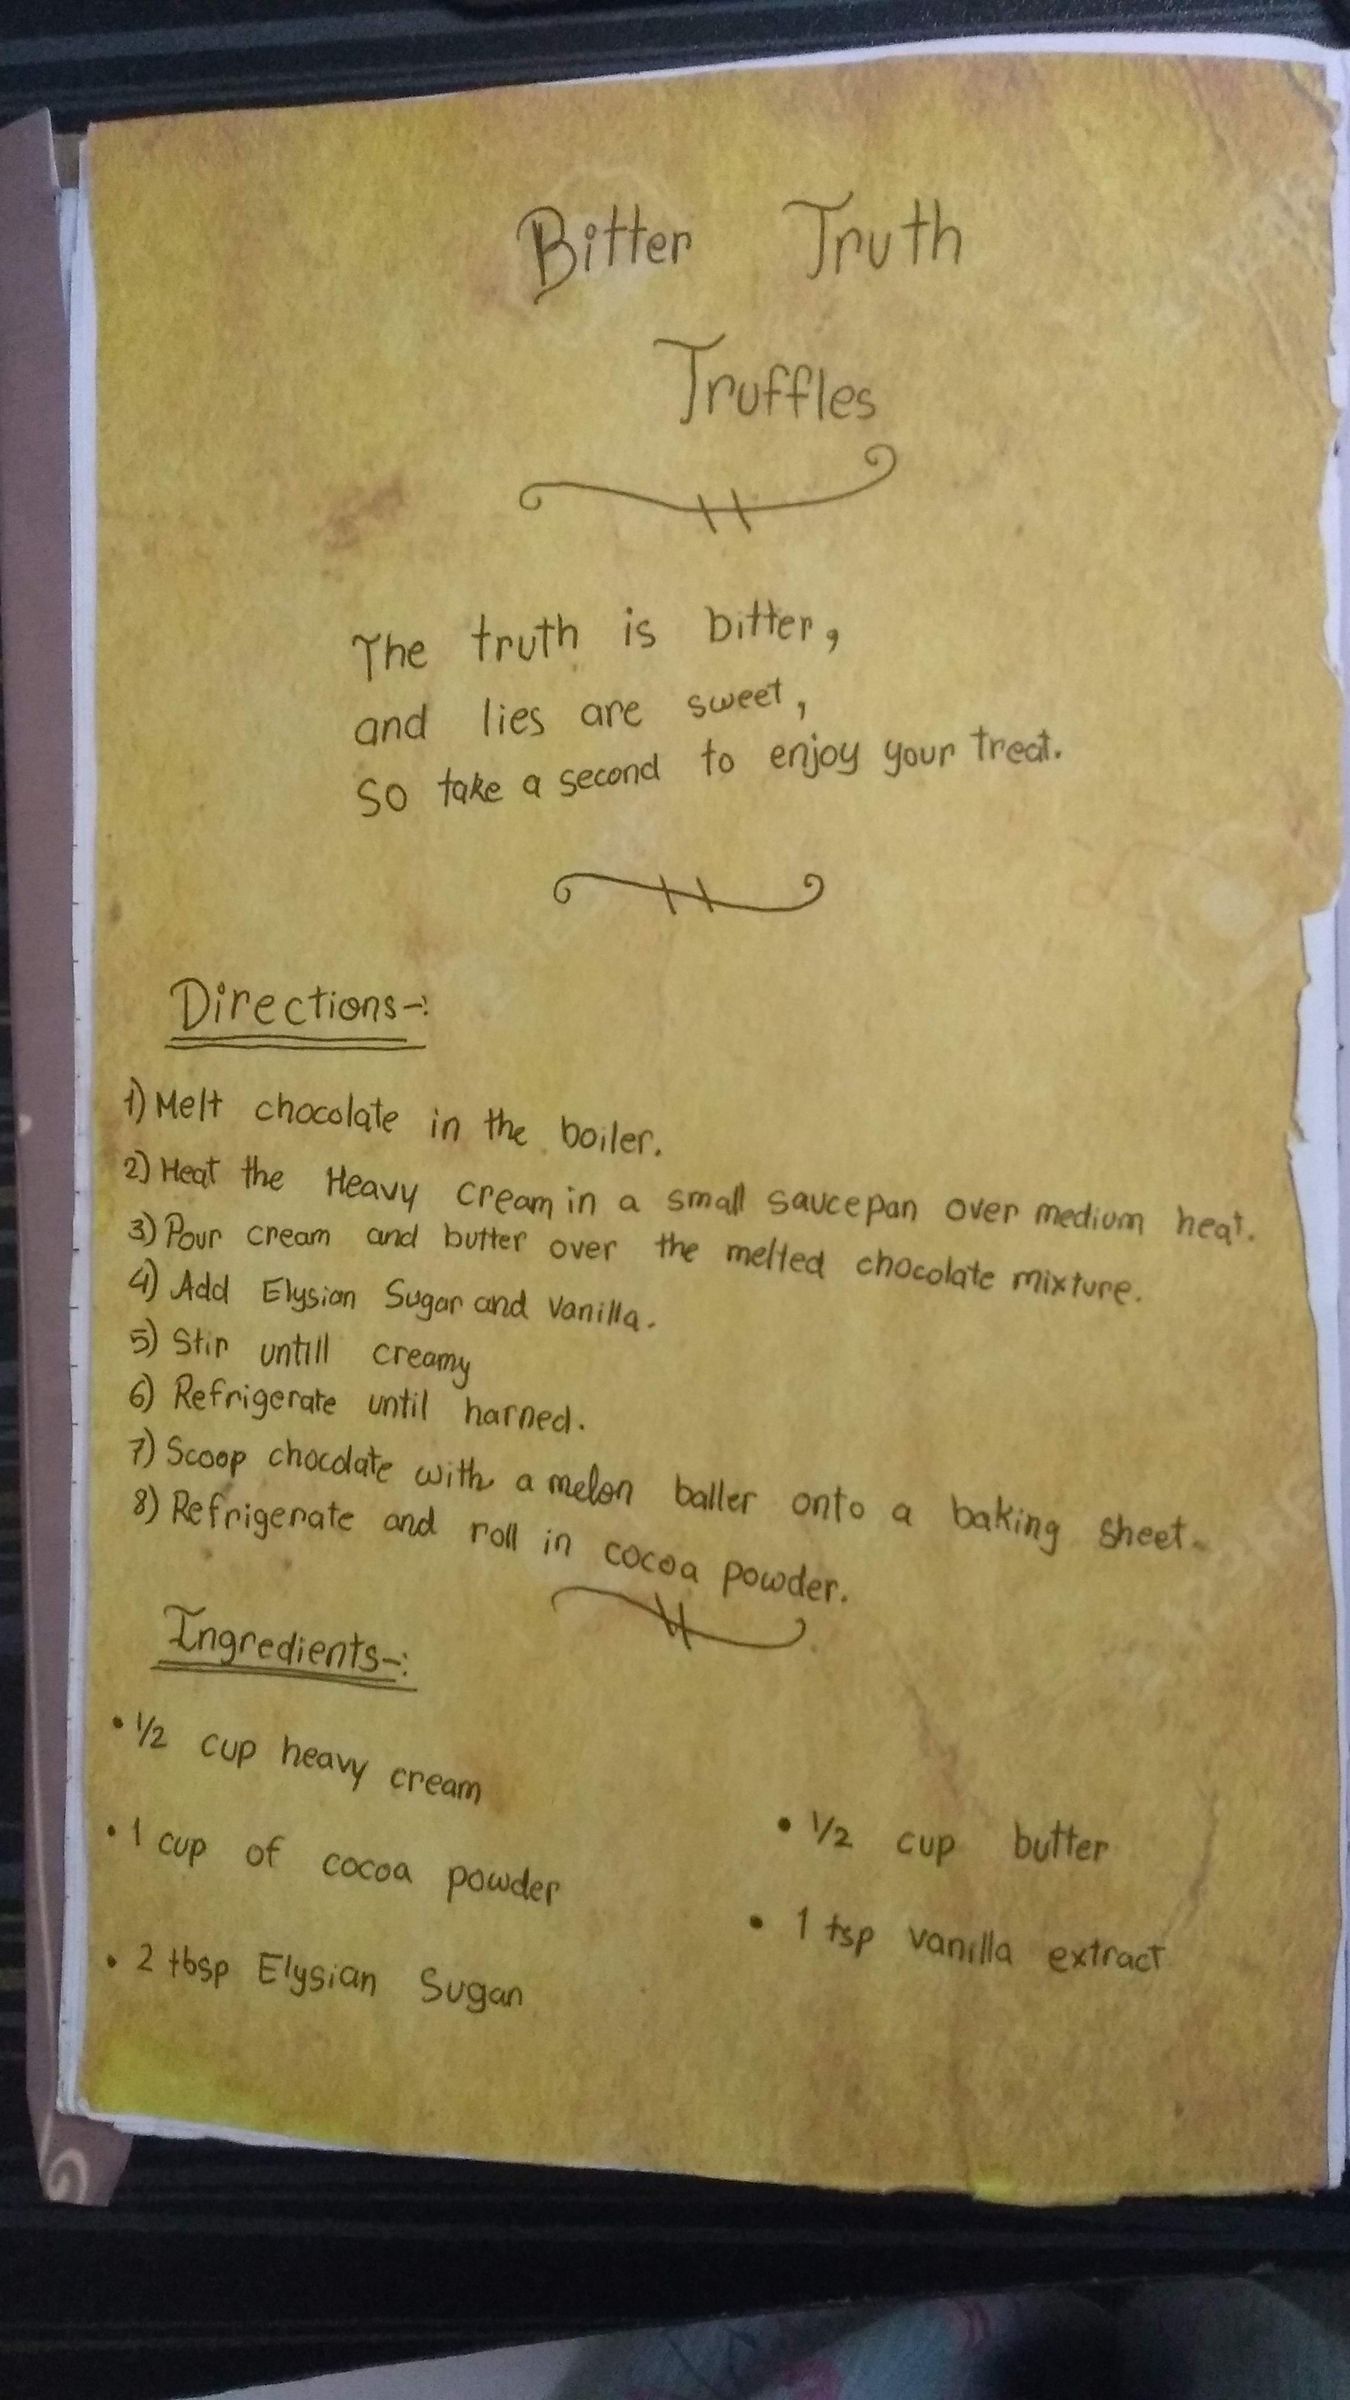 Bitter Truth
Truffles
The truth is bitter,
and lies are sweet,
So take a second to enjoy your treat.
Directions-:
1) Melt chocolate in the boiler.
2) Heat the Heavy cream in a small saucepan over medium heat.
3) Pour cream and butter over the melted chocolate mixture.
4) Add Elysian Sugar and vanilla.
5) Stir untill creamy
6) Refrigerate until harned.
7) Scoop chocolate with a melon baller onto a baking sheet.
8) Refrigerate and roll in cocoa powder.
Ingredients-:
• 1/2 cup heavy cream
• 1 cup of cocoa powder
• 2 tbsp Elysian Sugar
• 1/2 cup butter
• 1 tsp vanilla extract